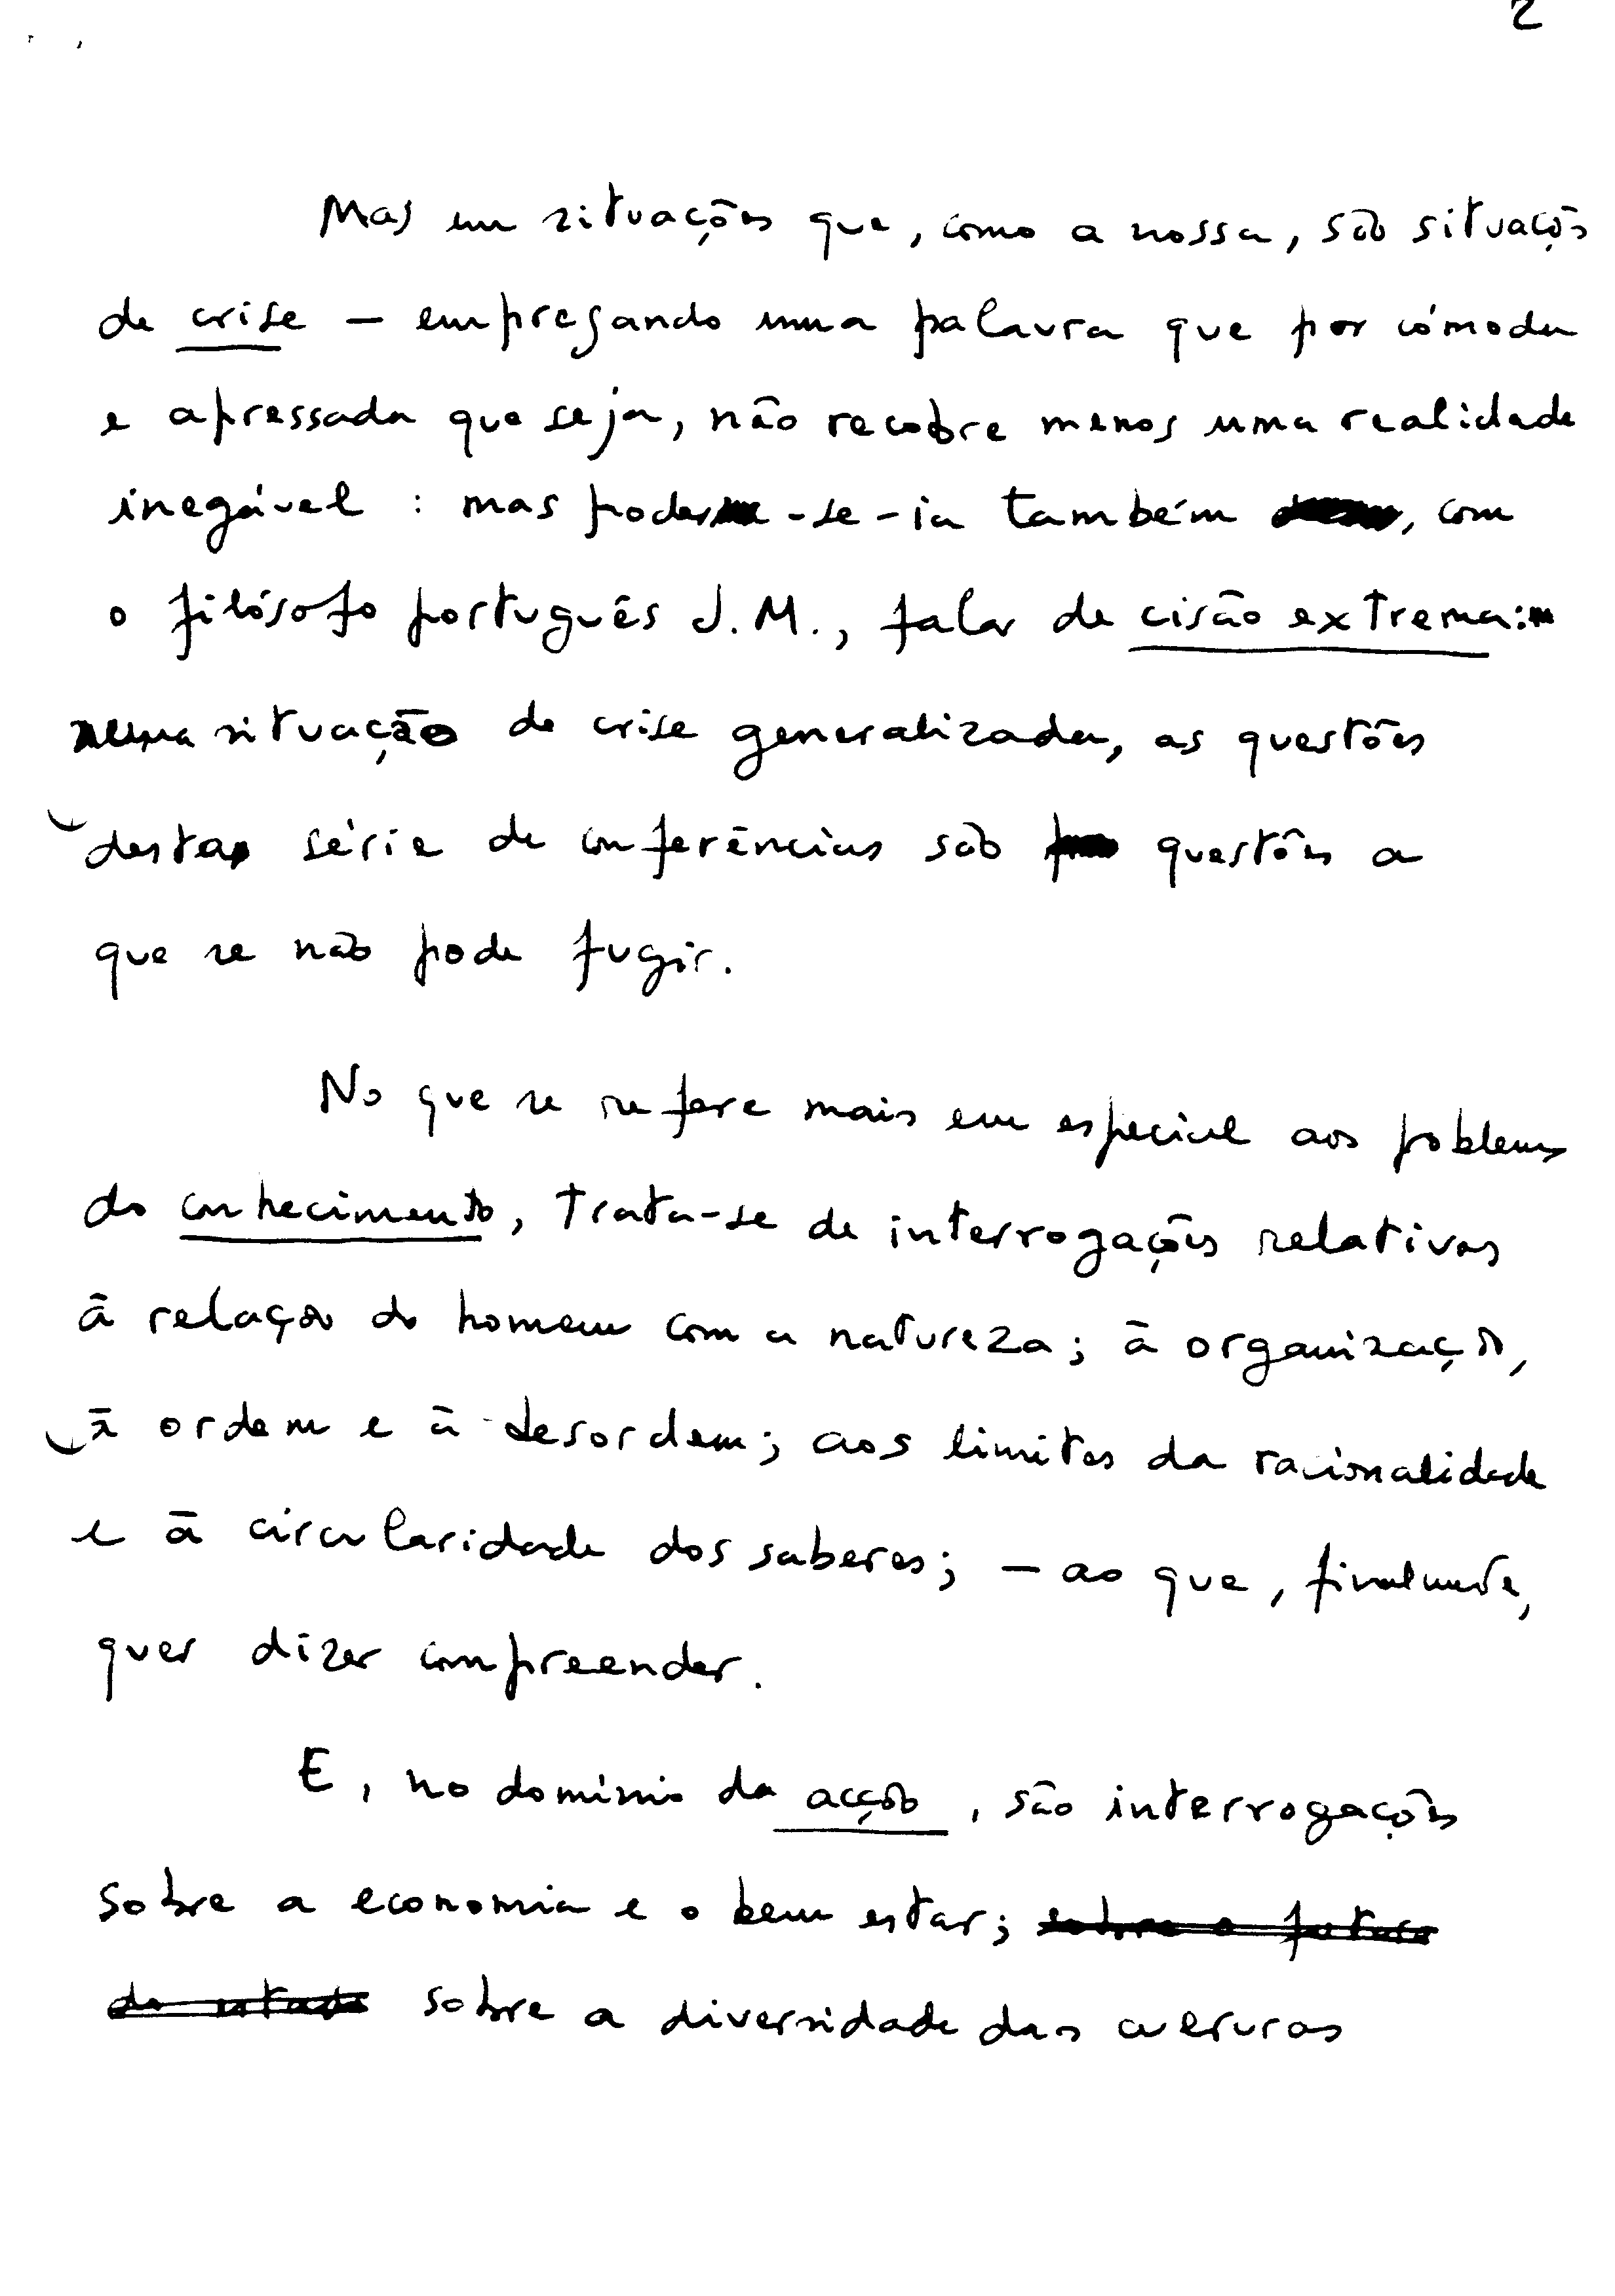 2
Mas em situações que, como a nossa, são situações
de crise — empregando uma palavra que por cómoda
e apressada que seja, não recobre menos uma realidade
inegável : mas poder-se-ia também , com
o filósofo português J.M., falar de cisão extrema:
numa situação de crise generalizada, as questões
desta série de conferências são questões a
que se não pode fugir.
No que se refere mais em especial aos poblemas
do conhecimento, trata-se de interrogações relativas
à relação do homem com a natureza; à organização,
à ordem e à desordem; aos limites da racionalidade
e à circularidade dos saberes; — ao que, finalmente,
quer dizer compreender.
E, no domínio da acção, são interrogações
sobre a economia e o bem estar; sobre o futuro
do estado sobre a diversidade das culturas